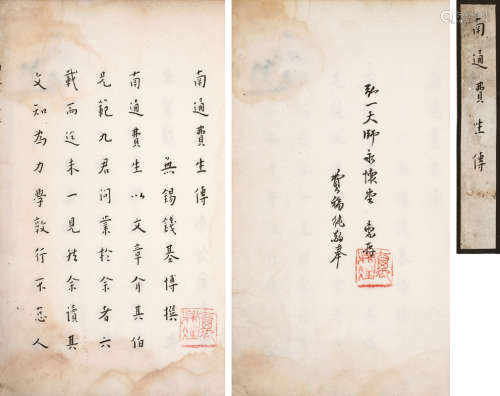 南通費生傳
弘一大師永懷 惠存
費 敬奉
南通費生傳
無錫錢基博撰
南通費生以文章介其伯
兄範九君問業於余者六
載而迄未一見然余讀其
文知為力學敦行不怠人